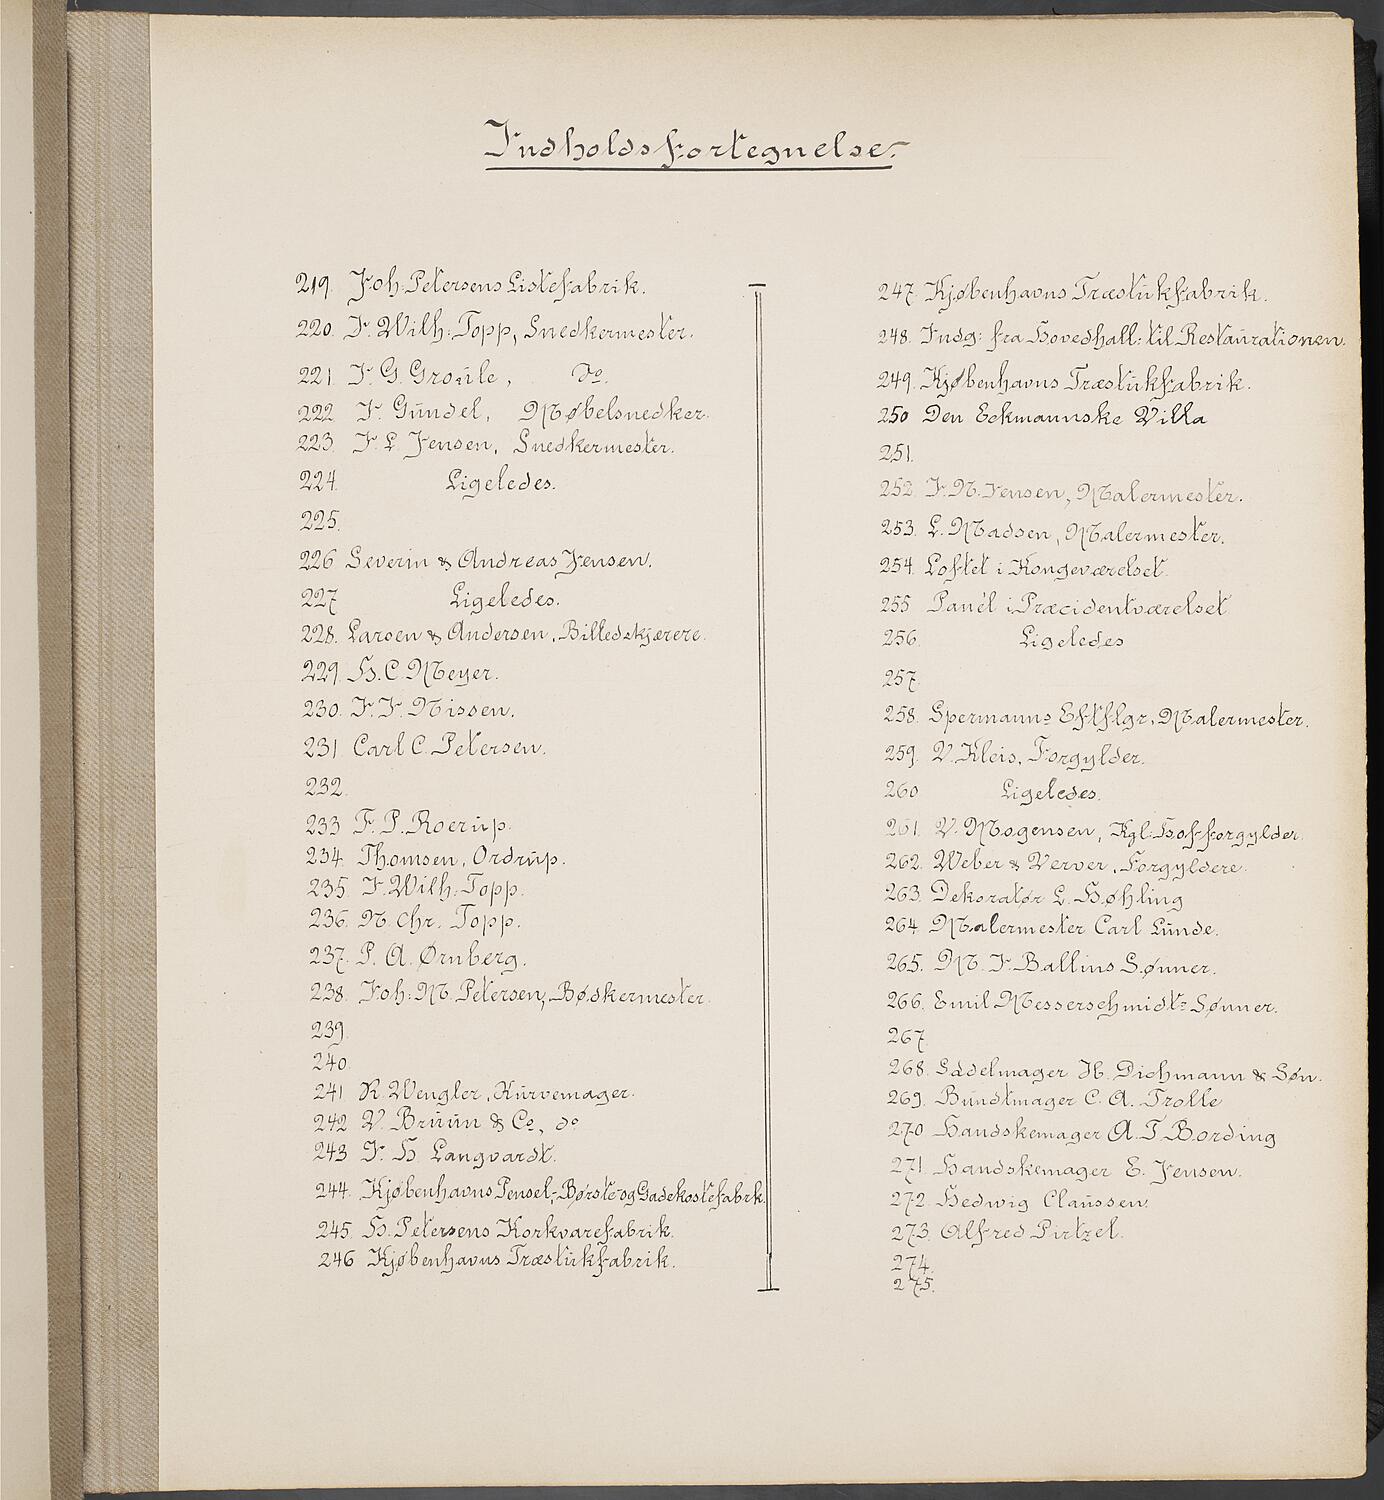 Indholdsfortegnelse.
219. Joh. Petersens Listefabrik.
220. J. Wilh: Topp, Snedkermester.
221. J. G. Groule, do.
222 J. Gundel, Møbelsnedker.
223. J. L. Jensen, Snedkermester.
224. Ligeledes.
225.
226 Severin & Andreas Jensen.
227 Ligeledes.
228. Larsen & Andersen, Billedskjærere.
229. H. C. Meyer.
230. J. J. Nissen.
231 Carl C. Petersen.
232.
233 F. P. Roerup.
234. Thomsen, Ordrup.
235. J. Wilh: Topp.
236. N. Chr. Topp.
237. P. A. Ørnberg.
238. Joh: M. Petersen, Bødkermester.
239.
240.
241 R. Wengler, Kurvemager.
242 V. Bruun & Co, do
243 J. H. Langvardt.
244. Kjøbenhavns Pensel,- Børste- og Gadekostefabrik.
245. H. Petersens Korkvarefabrik.
246 Kjøbenhavns Træstukfabrik.
247. Kjøbenhavns Træstukfabrik.
248. Indg: fra Hovedhall: til Restaurationen.
249. Kjøbenhavns Træstukfabrik.
250 Den Eckmannske Villa
251.
252. J. N. Jensen, Malermester.
253. L. Madsen, Malermester.
254. Loftet i Kongeværelset.
255 Panél i Præcidentværelset
256. Ligeledes
257.
258. Spermanns Eftflgr, Malermester.
259. V. Kleis, Forgylder.
260 Ligeledes.
261. V. Mogensen, Kgl: Hof-forgylder.
262. Weber & Verver, Forgyldere.
263. Dekoratør L. Høhling
264. Malermester Carl Lunde.
265. M. J. Ballins Sønner.
266. Emil Messerschmidts Sønner.
267.
268. Sadelmager H. Dichmann & Søn.
269. Bundtmager C. A. Trolle
270 Handskemager A. T. Bording
271. Handskemager E. Jensen.
272. Hedwig Claussen.
273. Alfred Pirtzel.
274.
275.